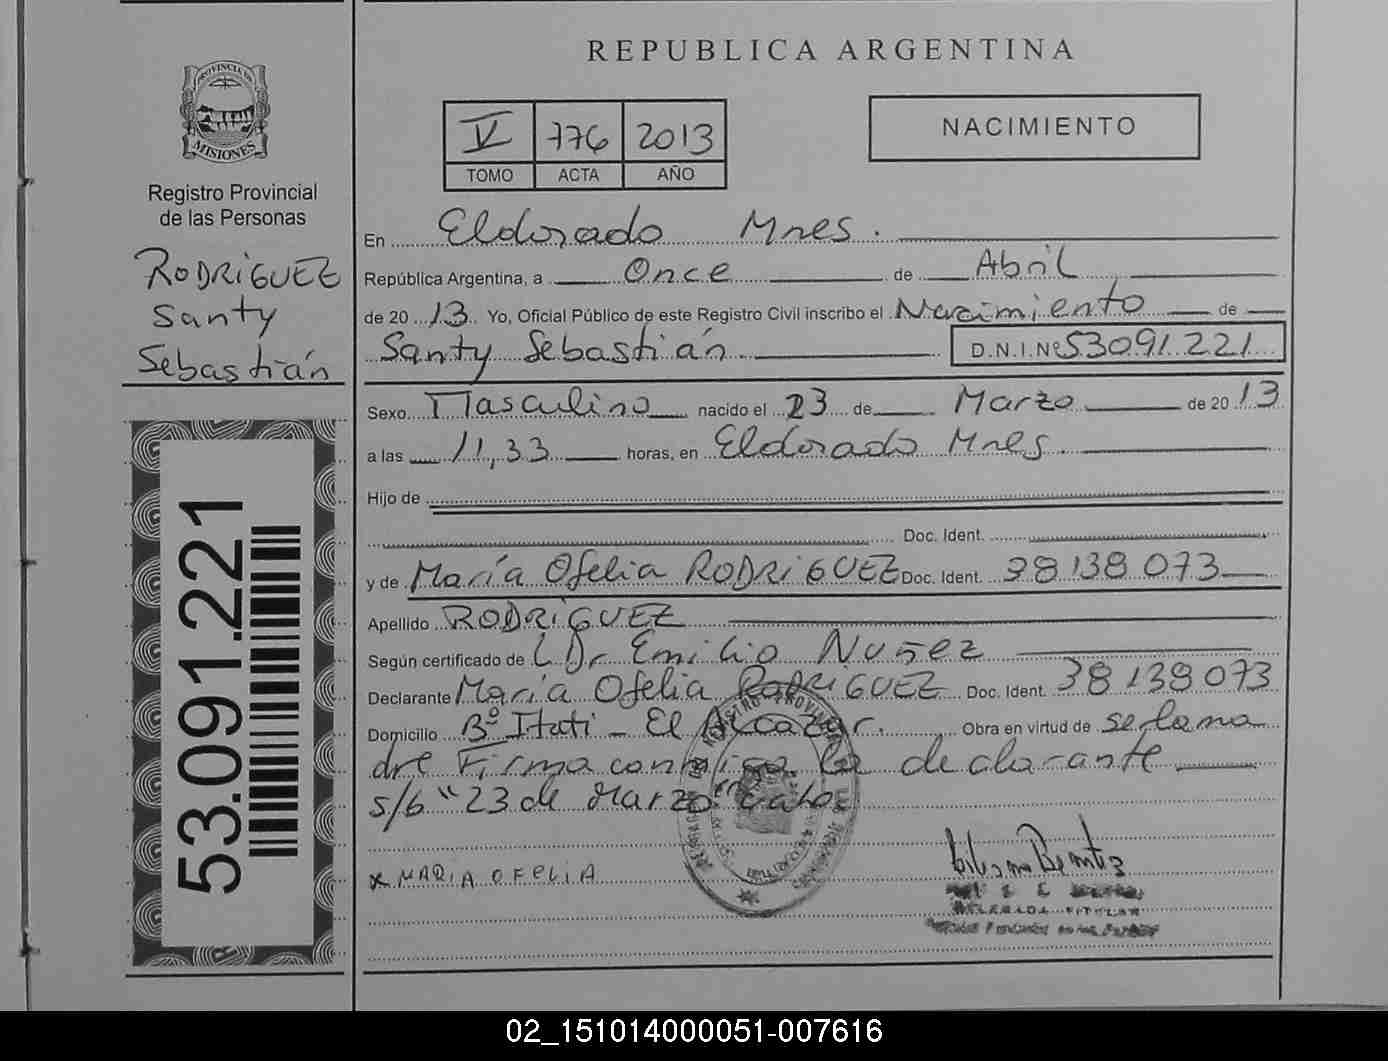 REPUBLICA ARGENTINA
PROVINCIA DE
MISIONES
Registro Provincial
de las Personas
RODRIGUEZ
Santy
Sebastián
53.091.221
V 776 2013
TOMO ACTA AÑO
NACIMIENTO
En Eldorado Mnes.
República Argentina, a Once de Abril
de 20 13 Yo, Oficial Público de este Registro Civil inscribo el Nacimiento de
Santy Sebastián D.N.I.Nº 53091.221
Sexo Masculino nacido el 23 de Marzo de 20 13
a las 11,33 horas, en Eldorado Mnes
Hijo de
Doc. Ident.
y de María Ofelia RODRIGUEZ Doc. Ident. 38138073
Apellido RODRIGUEZ
Según certificado de Dr Emilio Nuñez
Declarante María Ofelia RODRIGUEZ Doc. Ident. 38138073
Domicilio Bº Itati - El Alcazar. Obra en virtud de ser la ma
dre Firma conmigo la declarante
s/b "23 de Marzo" Vale
x MARIA OFELIA
DELEGADA TITULAR
02_151014000051-007616